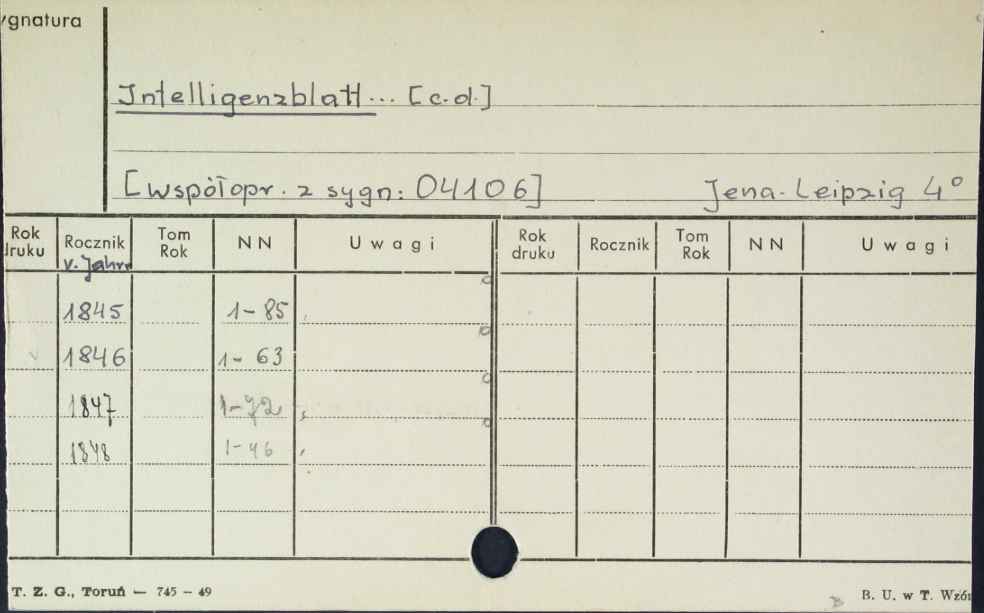 ygnatura
Intelligenzblatt... [c.d.]
[współopr. z sygn: 04106] Jena-Leipzig 4°
Rok druku Rocznik Tom Rok NN Uwagi Rok druku Rocznik Tom Rok NN Uwagi
v. Jahre
1845 1-85
1846 1-63
1847 1-72
1848 1-46
T. Z. G., Toruń — 745 - 49 B. U. w T. Wzór